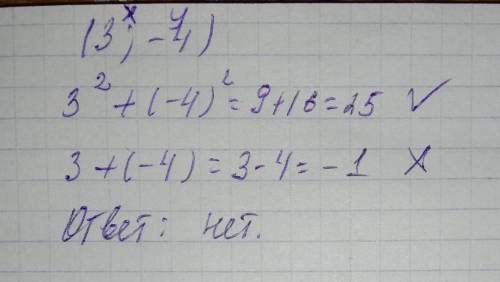 x y
(3; -4)
3² + (-4)² = 9+16 = 25 ✓
3 + (-4) = 3-4 = -1 ✗
Ответ: нет.